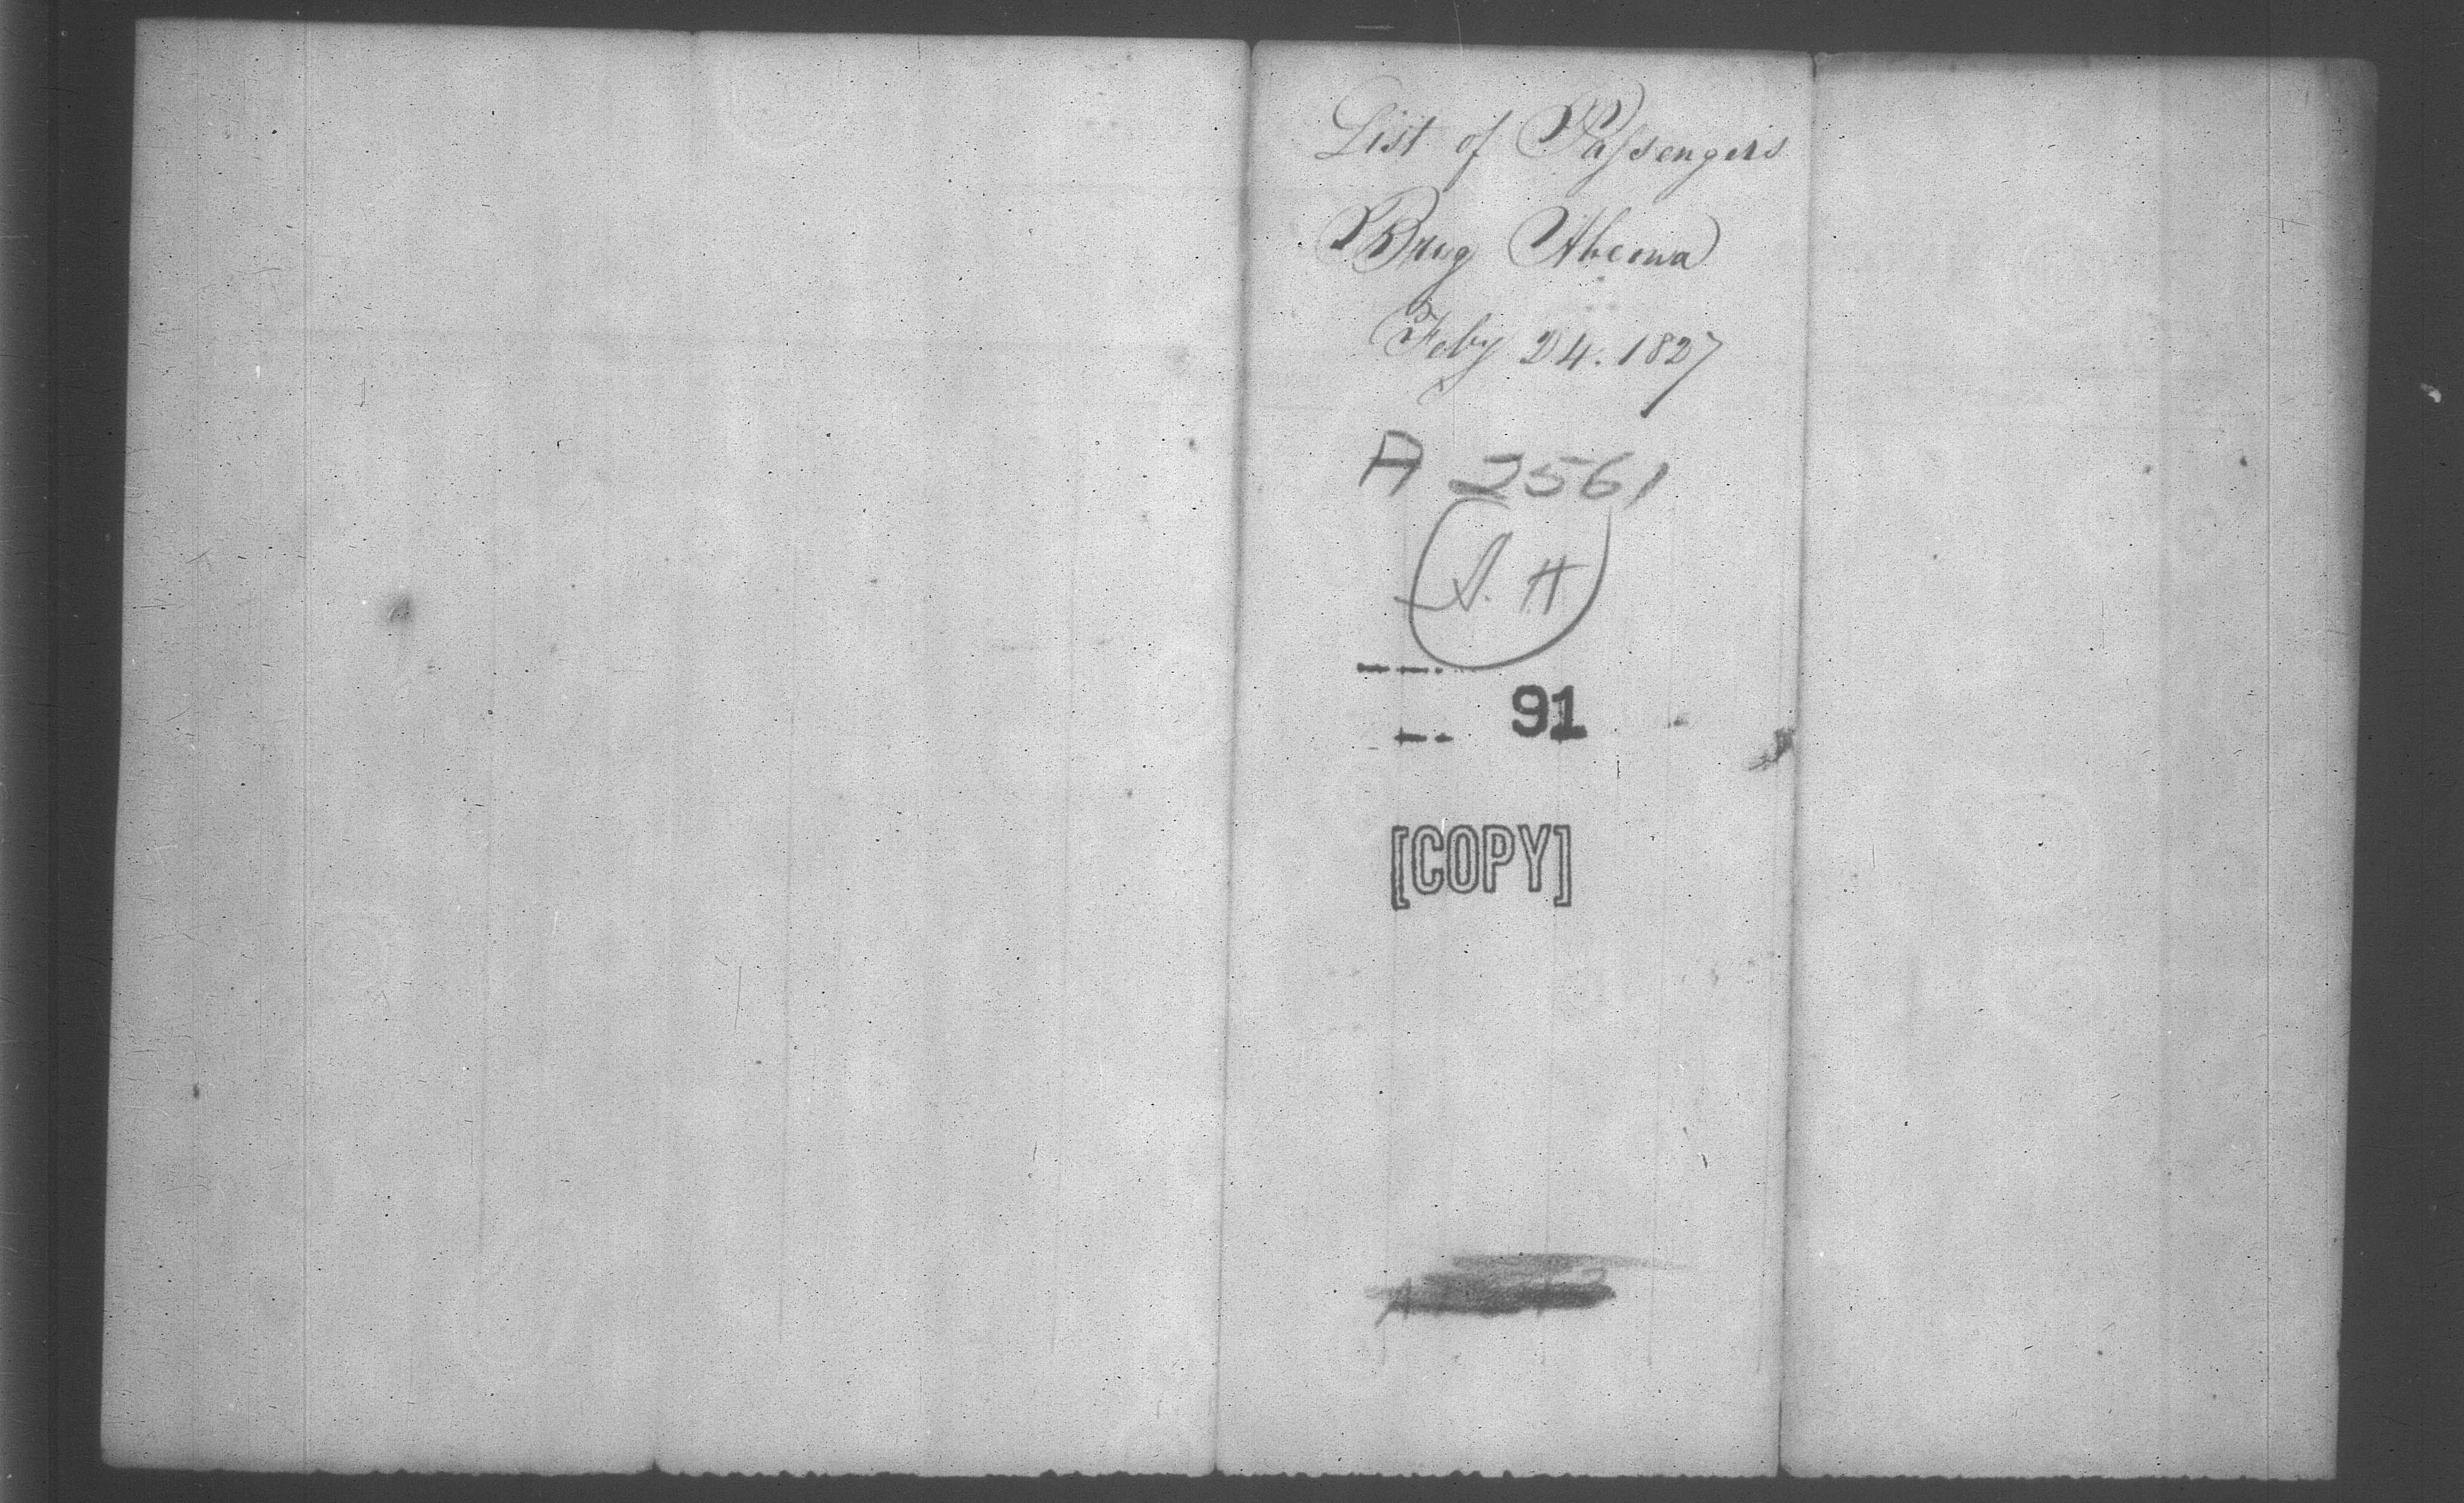 List of Passengers
Brig Abeona
Feby 24. 1827
A 2561
A. H
91
[COPY]